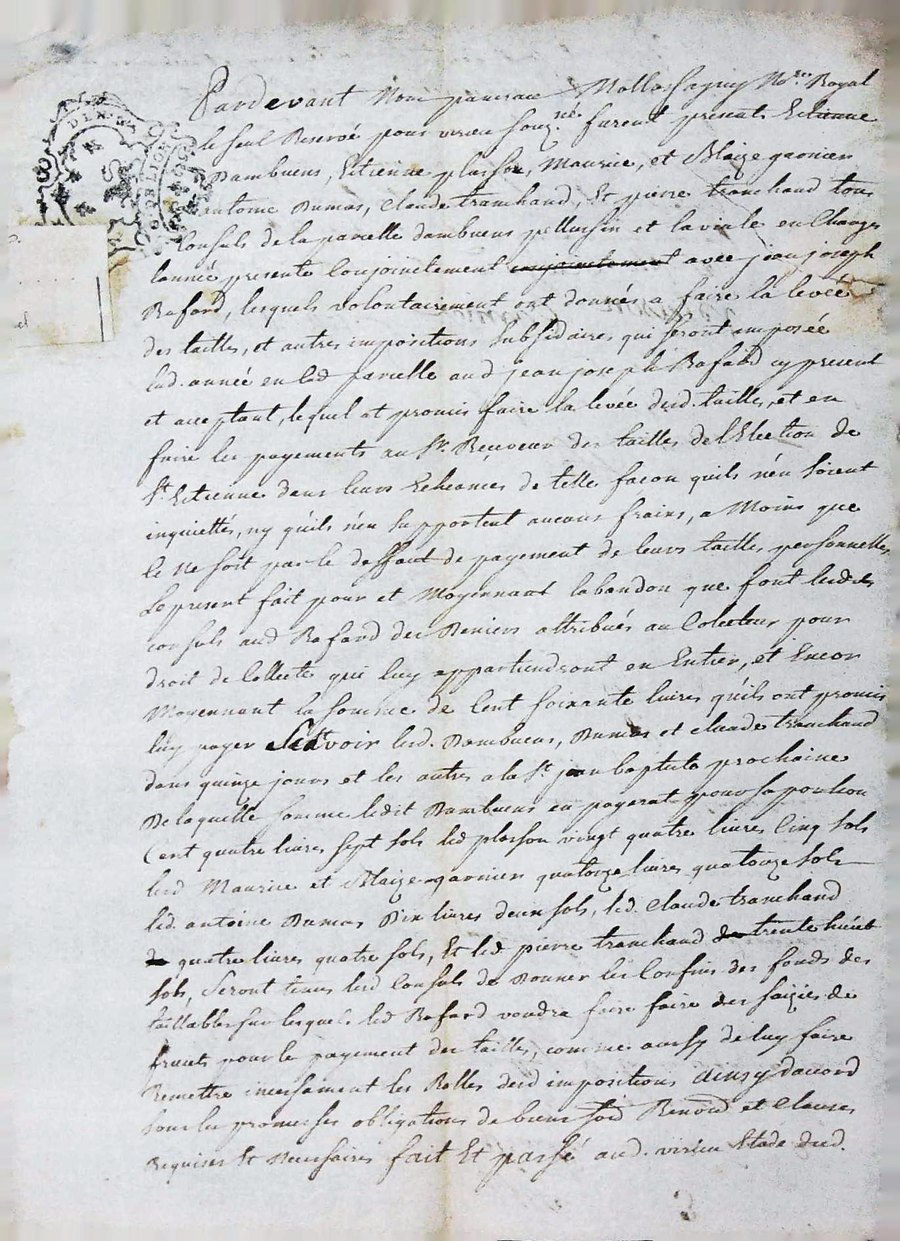 Pardevant Mon Not.re Royal
le seul Reservé pour virieu soug.né furent presents Estienne
Dambuens, Estienne plasson, Maurice, et Blaize garnier
antoine Dumas, Claude tranchand, Et pierre tranchand tous
Consuls de la parcelle dambuens pellussin et laviale en Charge
lannée presente Conjointement conjointement avec jean joseph
Bafard, lesquels volontairement ont donnés a faire la levée
des tailles, et autres impositions subsidaires qui seront imposée
lad. année en lad parcelle aud jean joseph Bafard cy present
et acceptant, lequel at promis faire la levée desd. tailles, et en
faire les payements au Sr. Receveur des tailles de lElection de
St. Estienne dans leurs Echeances de telle facon quils n'en soient
inquiettés, ny qu'ils n'en supportent aucuns frais, a Moins que
Ce Ne soit par le deffaut de payement de leurs tailles personnelles,
Le present fait pour et Moyennant labandon que font lesdits
consuls aud Bafard des Deniers attribués au Colecteur pour
droit de Collecte qui luy appartiendront en Entier, et Encor
Moyennant la somme de Cent soixante livres qu'ils ont promis
luy payer Scavoir led. Dambuens, Dumas et claude tranchand
dans quinze jours et les autres a la St. jean baptiste prochaine
De laquelle somme ledit Dambuens en payerat pour sa portion
Cent quatre livres sept sols led plasson vingt quatre livres Cinq sols
lesd Maurice et Blaize garnier quatorze livres quatorze sols
led. antoine Dumas Dix livres deux sols, led. Claude tranchand
quatre livres quatre sols, Et led pierre tranchand trente huict
sols, Seront tenus lesd Consuls de Donner les Confins des fonds des
taillables sur lesquels led Bafard voudra faire faire des saizies de
fruits pour le payement des tailles, comme aussy de luy faire
Remettre incessament les Rolles desd impositions ainsy daccord
sous les promesses obligations de biens soû Renonc.on et Clauses
Requises Et Necessaires fait Et passé aud. virieu Etude dud.